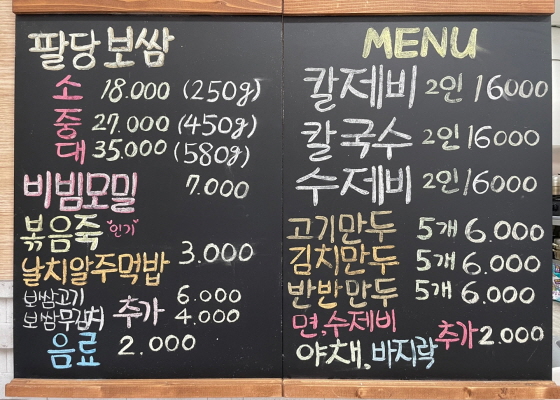 팔당보쌈
소 18.000 (250g)
중 27.000 (450g)
대 35.000 (580g)
비빔모밀 7.000
볶음죽 "인기"
날치알주먹밥 3.000
보쌈고기 추가 6.000
보쌈무김치 4.000
음료 2.000
MENU
칼제비 2인 16000
칼국수 2인 16000
수제비 2인 16000
고기만두 5개 6.000
김치만두 5개 6.000
반반만두 5개 6.000
면.수제비 추가 2.000
야채.바지락